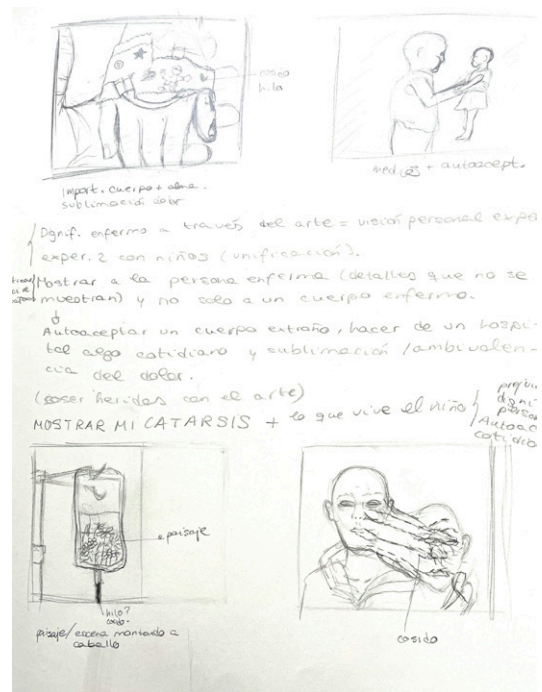 cosido
hilo
import. cuerpo + alma.
sublimación dolor
+ autoacept.
Dgnif. enfermo a través del arte = visión personal expe
exper. 2 con niños (unificación).
Mostrar a la persona enferma (detalles que no se
muestran) y no solo a un cuerpo enfermo.
Autoaceptar un cuerpo extraño, hacer de un hospi-
tal algo cotidiano y sublimación /ambivalen-
cia del dolor.
(coser heridas con el arte)
MOSTRAR MI CATARSIS + lo que vive el niño
Autoac
paisaje
hilo?
cosido.
paisaje/escena montando a
caballo
cosido